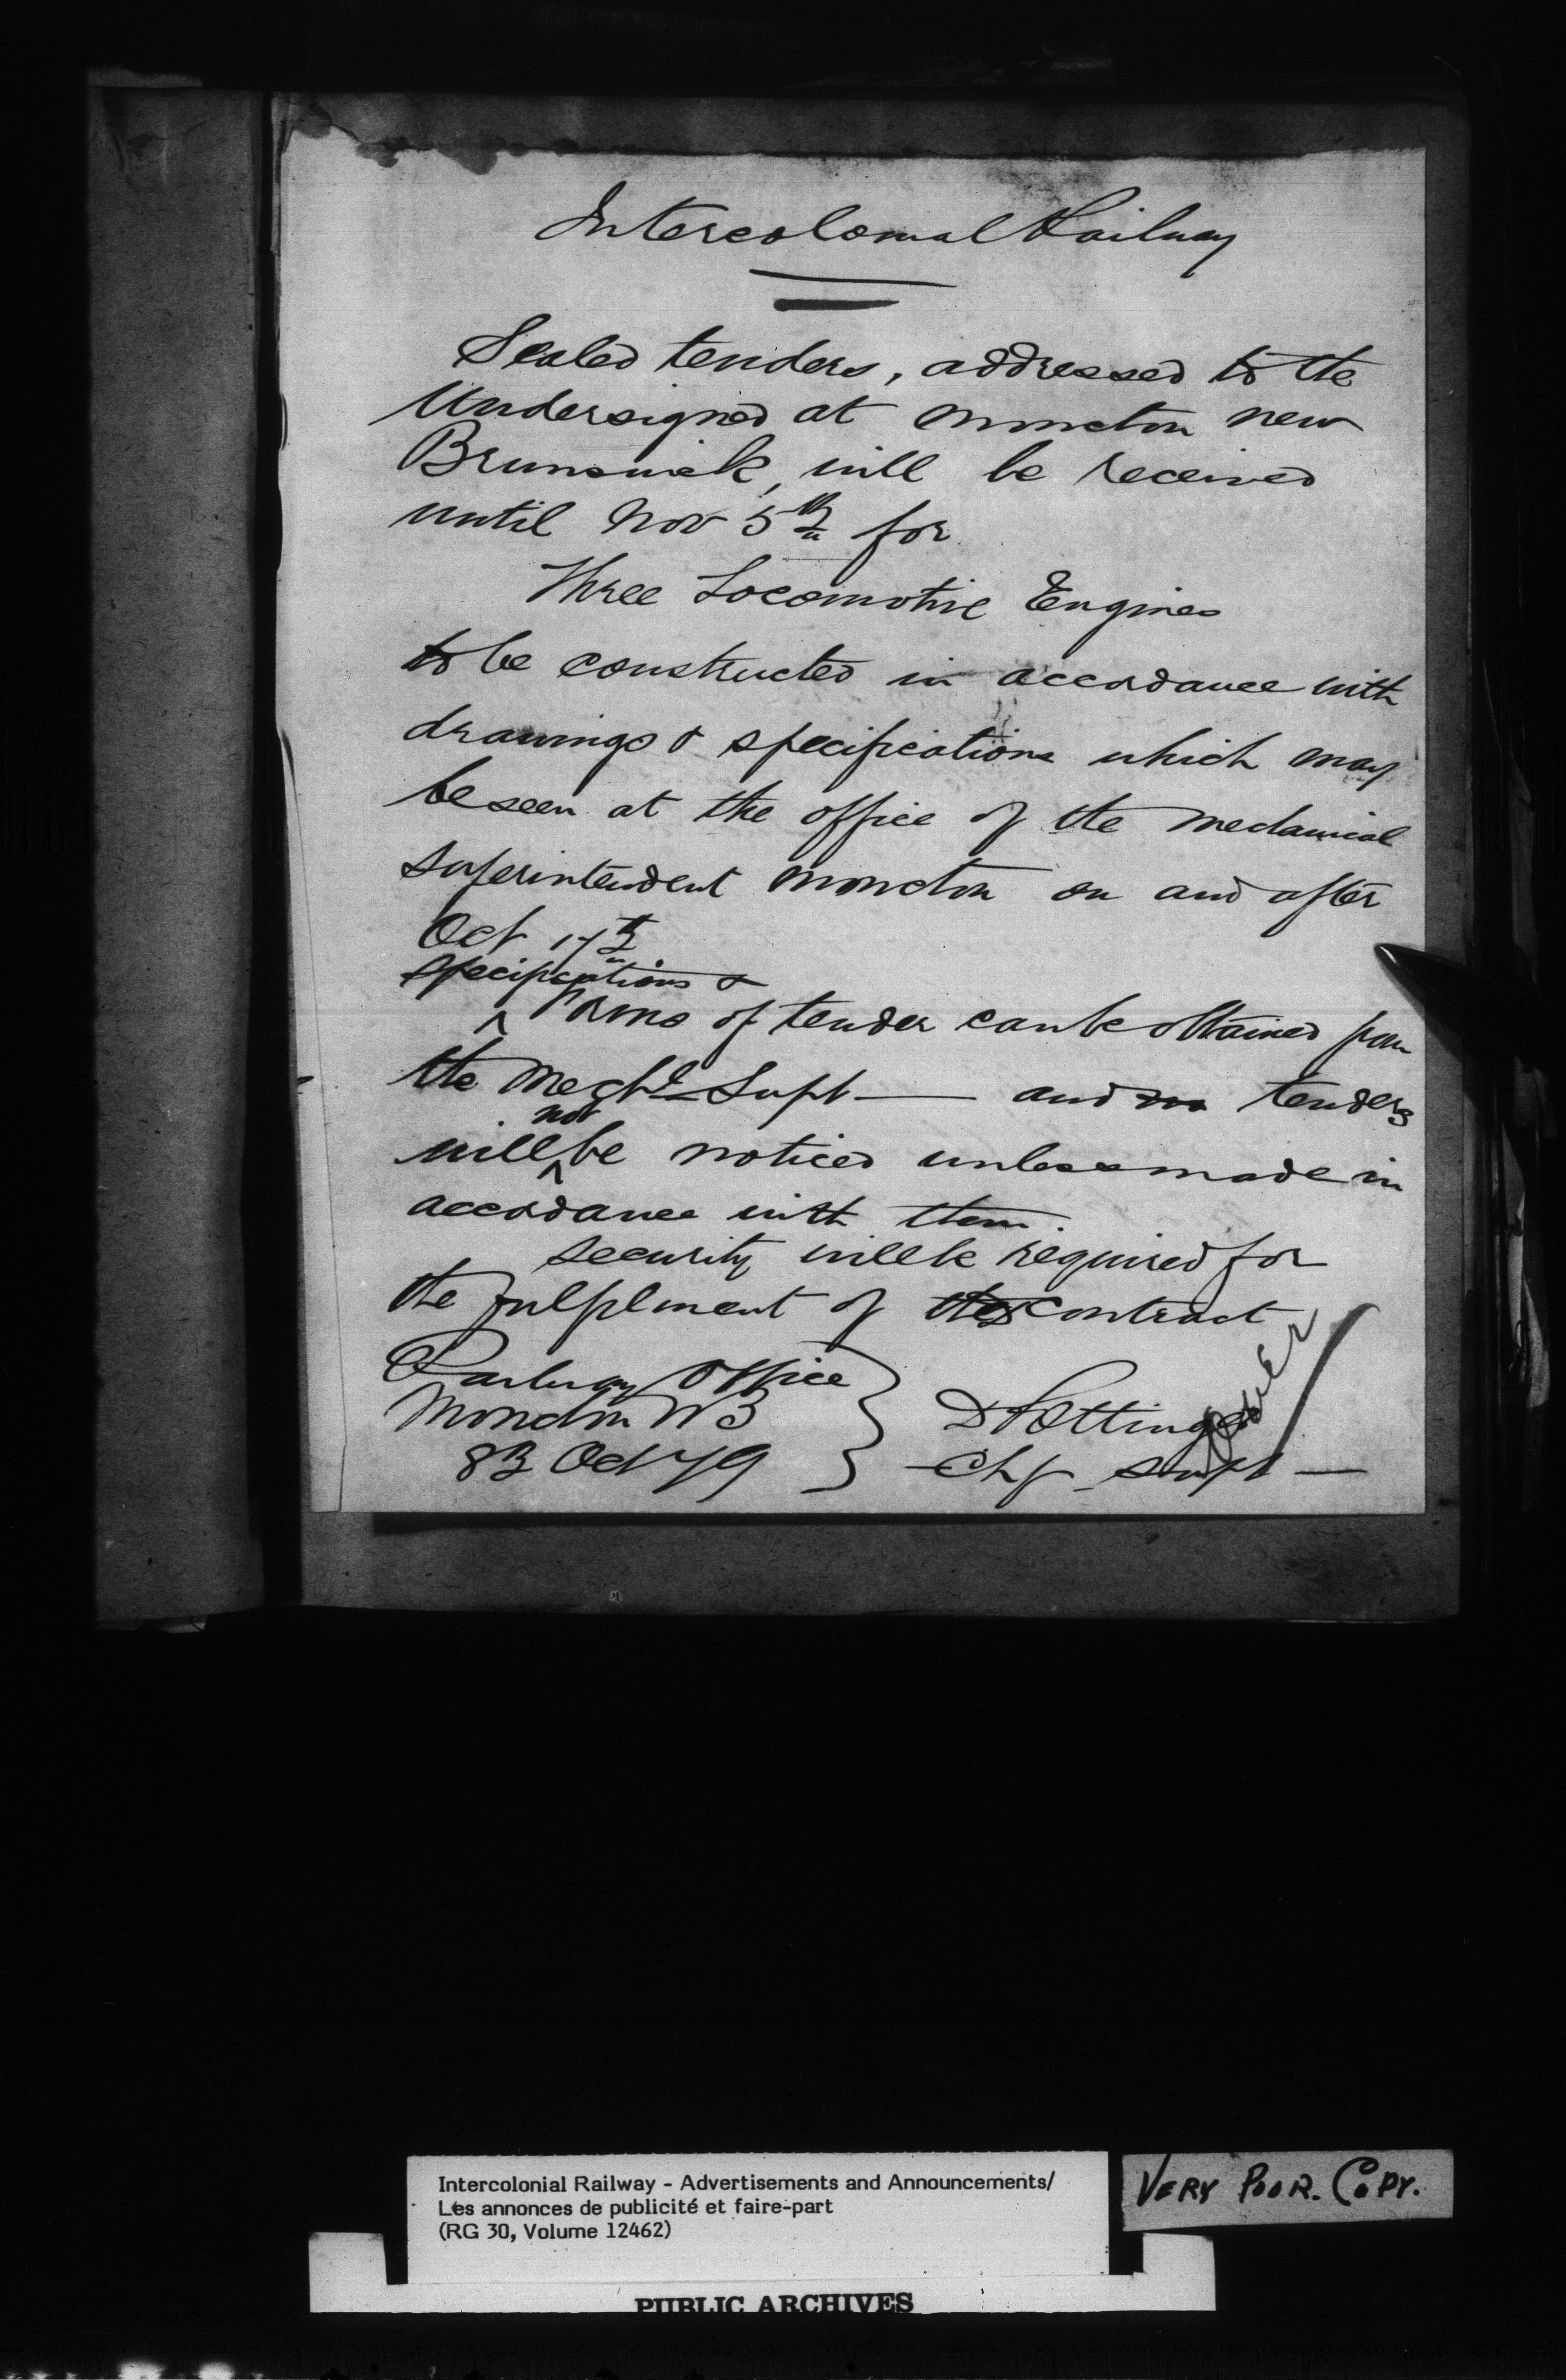 Intercolonial Railway
Sealed tenders, addressed to the
Undersigned at Moncton New
Brunswick, will be received
until Nov 5th for
Three Locomotive Engines
to be constructed in accordance with
drawings & specifications which may
be seen at the office of the Mechanical
Superintendent Moncton on and after
Oct 17th
specifications &
Forms of tender can be obtained from
the Mechl Supt — and no tenders
not
will be noticed unless made in
accordance with them.
security will be required for
the fulfilment of the contract
Railway Office
Moncton NB
8th Oct 79
D Pottinger
Chf Supt —
over
Intercolonial Railway - Advertisements and Announcements/
Les annonces de publicité et faire-part
(RG 30, Volume 12462)
VERY POOR. COPY.
PUBLIC ARCHIVES